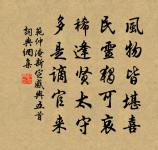 風物皆堪喜
民靈獨可哀
稀逢賢太守
多是謫官來
範仲淹新定感興五首
詞典網集